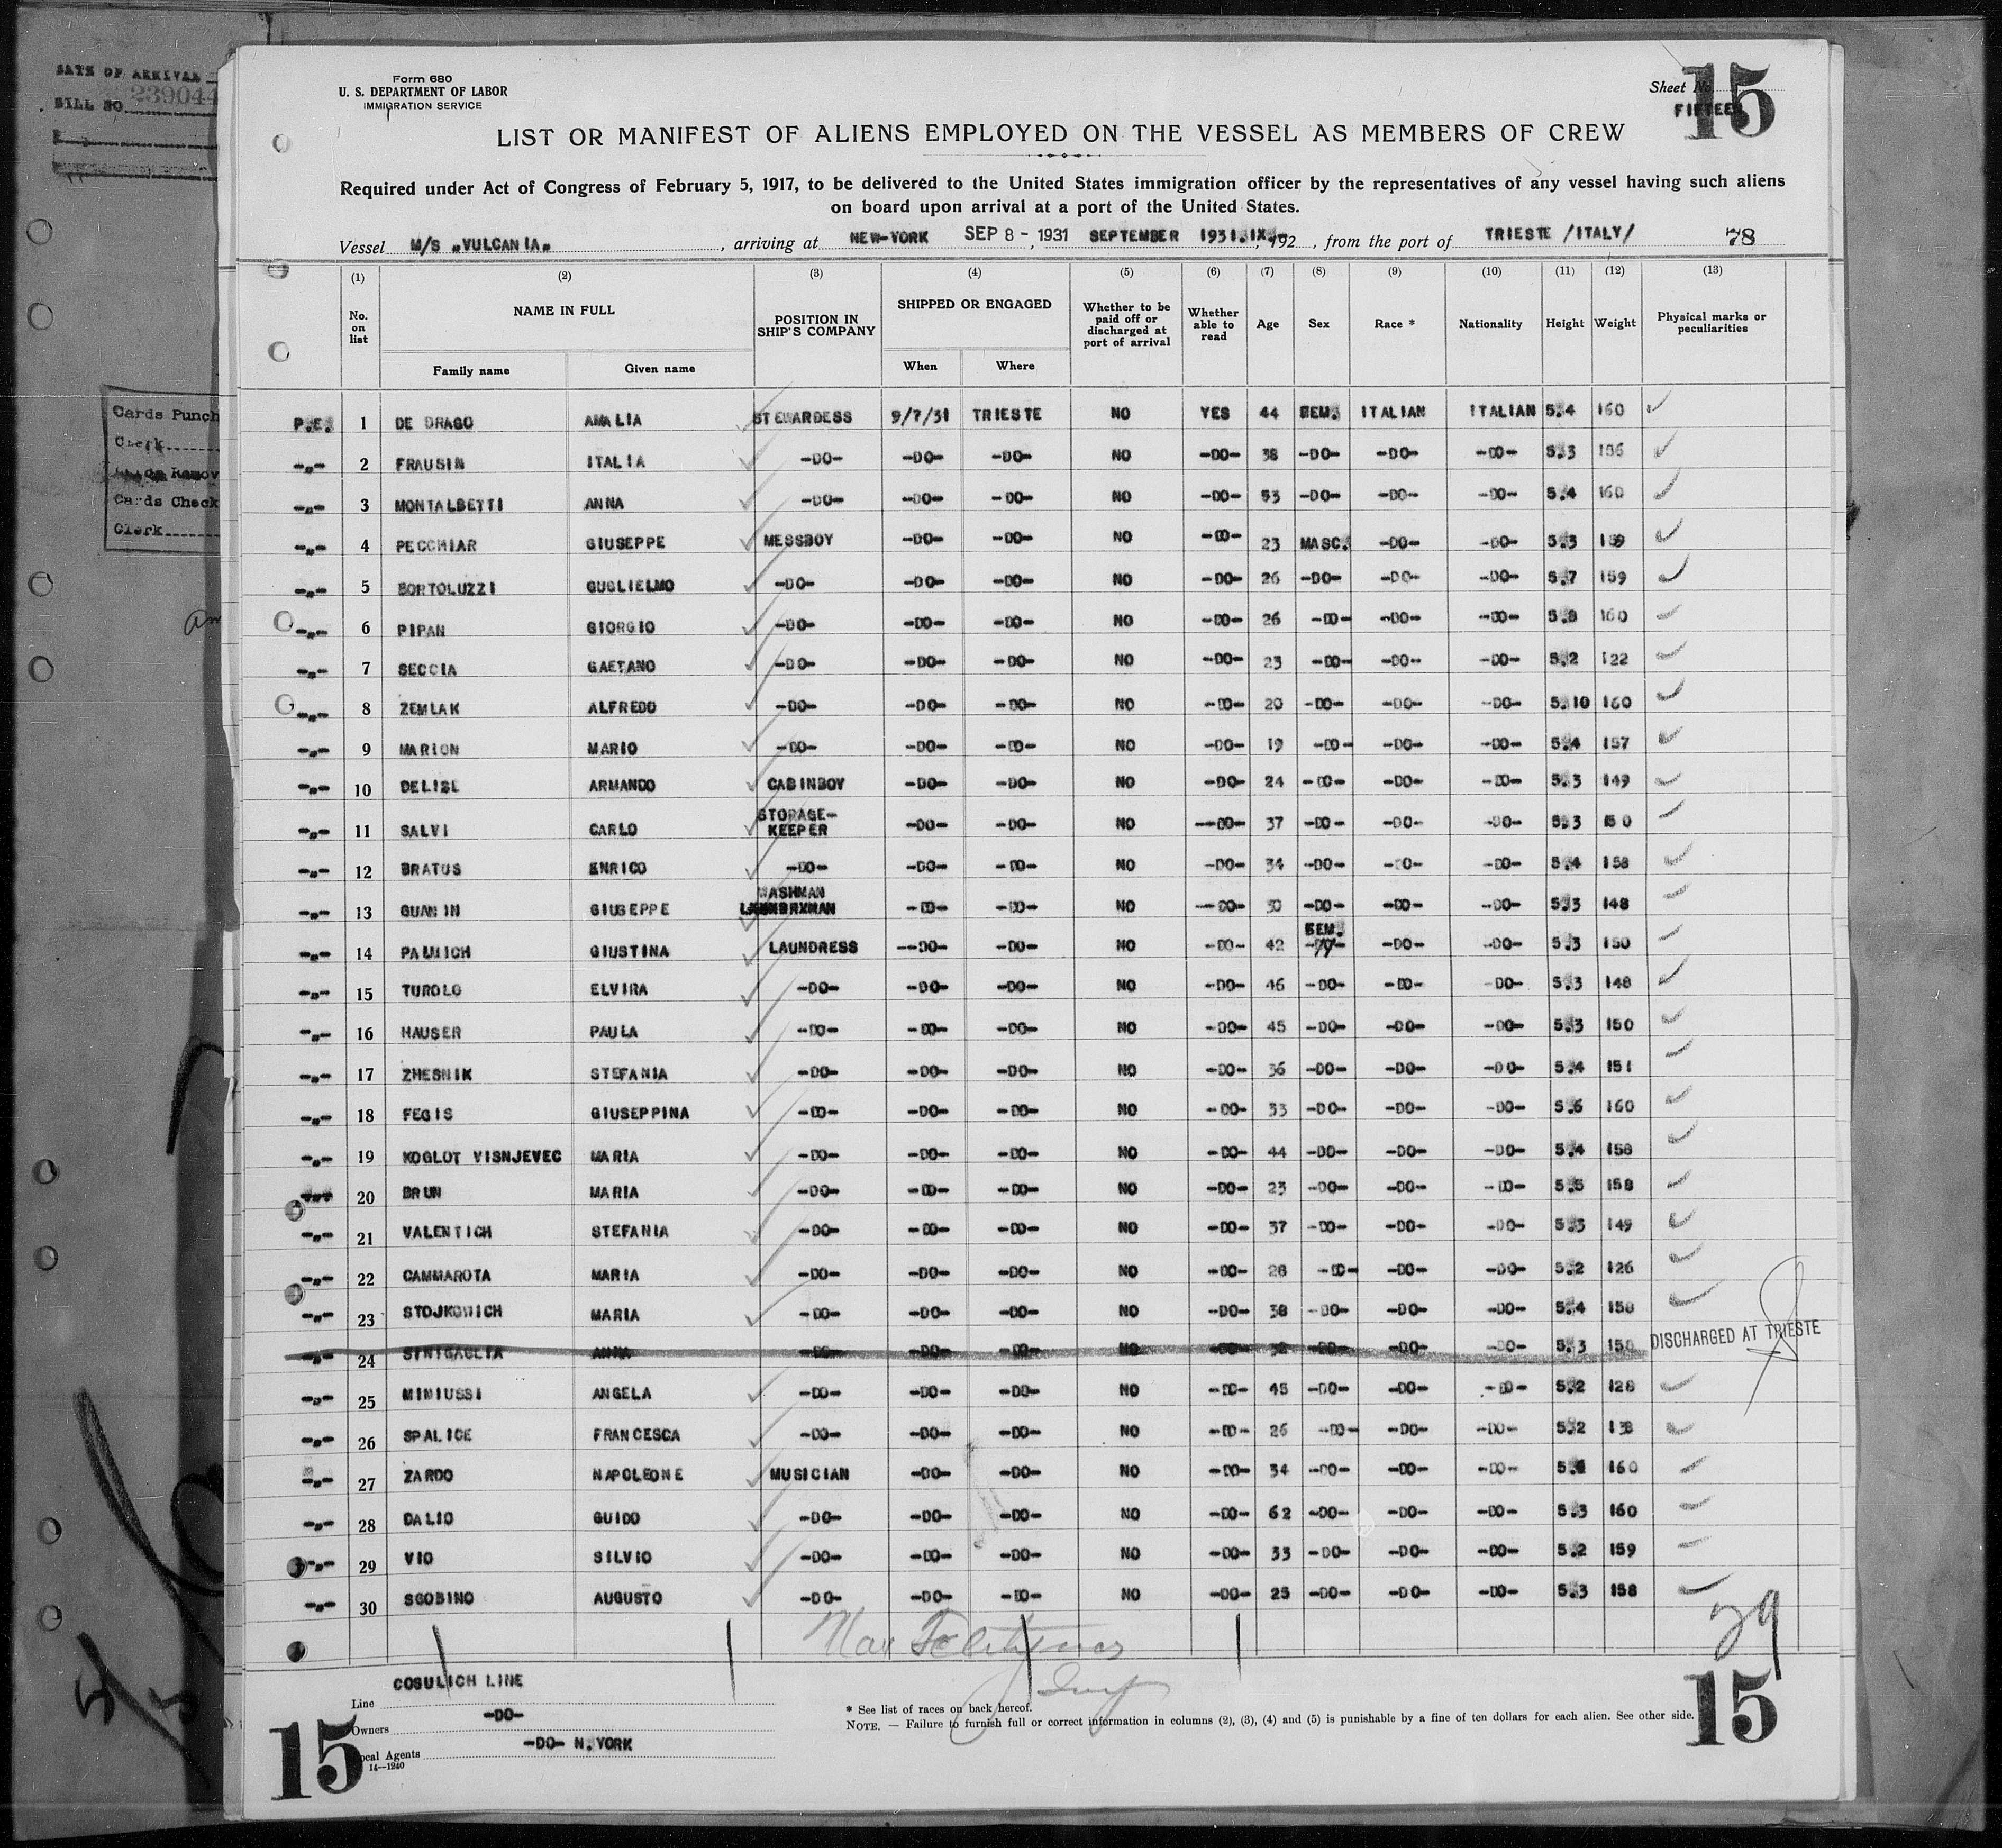 DATE OF ARRIVAL
BILL NO. 239044
Cards Punch
Clerk
Cards Remov
Cards Check
Clerk
Form 680
U. S. DEPARTMENT OF LABOR
IMMIGRATION SERVICE
Sheet No. FIFTEEN
15
LIST OR MANIFEST OF ALIENS EMPLOYED ON THE VESSEL AS MEMBERS OF CREW
Required under Act of Congress of February 5, 1917, to be delivered to the United States immigration officer by the representatives of any vessel having such aliens
on board upon arrival at a port of the United States.
Vessel M/S „VULCANIA„, arriving at NEW-YORK SEP 8 - 1931 SEPTEMBER 1931.IX.-, 192 , from the port of TRIESTE /ITALY/ 78
(1) (2) (3) (4) (5) (6) (7) (8) (9) (10) (11) (12) (13)
No. on list NAME IN FULL Family name Given name POSITION IN SHIP'S COMPANY SHIPPED OR ENGAGED When Where Whether to be paid off or discharged at port of arrival Whether able to read Age Sex Race * Nationality Height Weight Physical marks or peculiarities
P.E. 1 DE DRAGO AMALIA STEWARDESS 9/7/31 TRIESTE NO YES 44 FEM. ITALIAN ITALIAN 5.4 160
-„- 2 FRAUSIN ITALIA -DO- -DO- -DO- NO -DO- 38 -DO- -DO- -DO- 5.3 156
-„- 3 MONTALBETTI ANNA -DO- -DO- -DO- NO -DO- 53 -DO- -DO- -DO- 5.4 160
-„- 4 PECCHIAR GIUSEPPE MESSBOY -DO- -DO- NO -DO- 23 MASC. -DO- -DO- 5.3 159
-„- 5 BORTOLUZZI GUGLIELMO -DO- -DO- -DO- NO -DO- 26 -DO- -DO- -DO- 5.7 159
-„- 6 PIPAN GIORGIO -DO- -DO- -DO- NO -DO- 26 -DO- -DO- -DO- 5.8 160
-„- 7 SECCIA GAETANO -DO- -DO- -DO- NO -DO- 23 -DO- -DO- -DO- 5.2 122
-„- 8 ZEMLAK ALFREDO -DO- -DO- -DO- NO -DO- 20 -DO- -DO- -DO- 5.10 160
-„- 9 MARION MARIO -DO- -DO- -DO- NO -DO- 19 -DO- -DO- -DO- 5.4 157
-„- 10 DELISE ARMANDO CABINBOY -DO- -DO- NO -DO- 24 -DO- -DO- -DO- 5.3 149
-„- 11 SALVI CARLO STORAGE-KEEPER -DO- -DO- NO -DO- 37 -DO- -DO- -DO- 5.3 150
-„- 12 BRATUS ENRICO -DO- -DO- -DO- NO -DO- 34 -DO- -DO- -DO- 5.4 158
-„- 13 GUANIN GIUSEPPE WASHMAN -DO- -DO- NO -DO- 30 -DO- -DO- -DO- 5.3 148
-„- 14 PAUNICH GIUSTINA LAUNDRESS -DO- -DO- NO -DO- 42 FEM. -DO- -DO- 5.3 150
-„- 15 TUROLO ELVIRA -DO- -DO- -DO- NO -DO- 46 -DO- -DO- -DO- 5.3 148
-„- 16 HAUSER PAULA -DO- -DO- -DO- NO -DO- 45 -DO- -DO- -DO- 5.3 150
-„- 17 ZHESNIK STEFANIA -DO- -DO- -DO- NO -DO- 36 -DO- -DO- -DO- 5.4 151
-„- 18 FEGIS GIUSEPPINA -DO- -DO- -DO- NO -DO- 33 -DO- -DO- -DO- 5.6 160
-„- 19 KOGLOT VISNJEVEC MARIA -DO- -DO- -DO- NO -DO- 44 -DO- -DO- -DO- 5.4 158
-„- 20 BRUN MARIA -DO- -DO- -DO- NO -DO- 23 -DO- -DO- -DO- 5.5 158
-„- 21 VALENTICH STEFANIA -DO- -DO- -DO- NO -DO- 37 -DO- -DO- -DO- 5.3 149
-„- 22 CAMMAROTA MARIA -DO- -DO- -DO- NO -DO- 28 -DO- -DO- -DO- 5.2 126
-„- 23 STOJKOWICH MARIA -DO- -DO- -DO- NO -DO- 38 -DO- -DO- -DO- 5.4 158
-„- 24 SINIGAGLIA ANNA -DO- -DO- -DO- NO -DO- 32 -DO- -DO- -DO- 5.3 158 DISCHARGED AT TRIESTE
-„- 25 MINIUSSI ANGELA -DO- -DO- -DO- NO -DO- 45 -DO- -DO- -DO- 5.2 128
-„- 26 SPALICE FRANCESCA -DO- -DO- -DO- NO -DO- 26 -DO- -DO- -DO- 5.2 138
-„- 27 ZARDO NAPOLEONE MUSICIAN -DO- -DO- NO -DO- 34 -DO- -DO- -DO- 5.4 160
-„- 28 DALIO GUIDO -DO- -DO- -DO- NO -DO- 62 -DO- -DO- -DO- 5.3 160
-„- 29 VIO SILVIO -DO- -DO- -DO- NO -DO- 33 -DO- -DO- -DO- 5.2 159
-„- 30 SGOBINO AUGUSTO -DO- -DO- -DO- NO -DO- 25 -DO- -DO- -DO- 5.3 158
29
Line COSULICH LINE
Owners -DO-
Local Agents -DO- N.YORK
14-1240
* See list of races on back hereof.
NOTE. — Failure to furnish full or correct information in columns (2), (3), (4) and (5) is punishable by a fine of ten dollars for each alien. See other side.
15
15